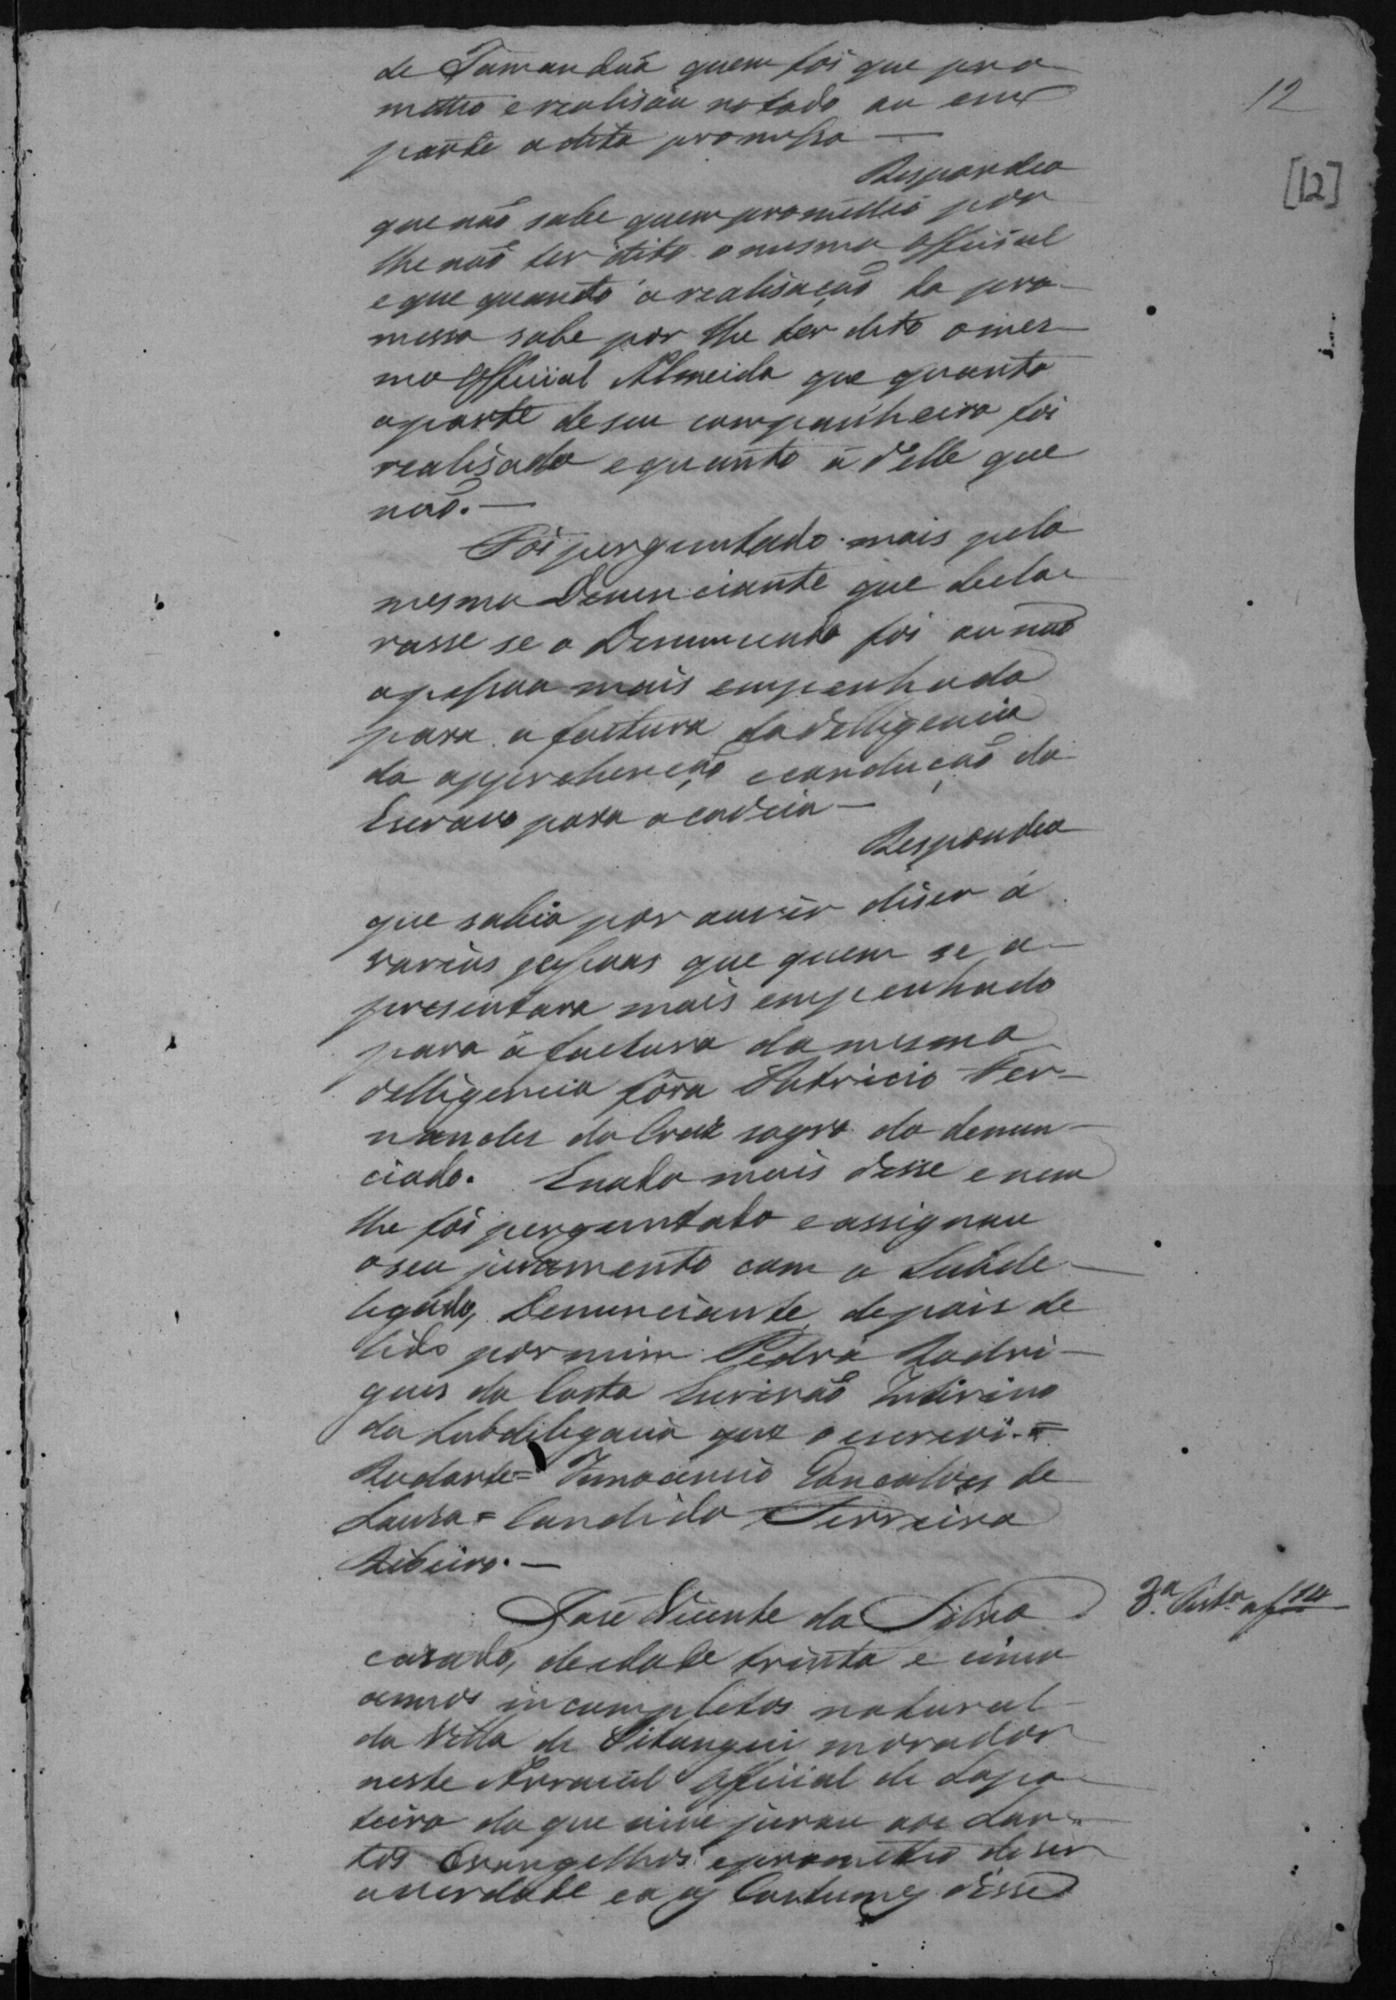 12
[12]
de Tamanduá quem foi que pro
metteo e realisou no todo ou em
parte a dita promessa —
Respondeo
que não sabe quem prometteo por
lhe não ter dito o mesmo official
e que quanto a realisação da pro-
messa sabe por lhe ter dito o mes-
mo Official Almeida que quanto
a parte de seu companheiro foi
realisada e quanto á d'elle que
não. —
Foi perguntado mais pelo
mesmo Denunciante que decla-
rasse se o Denunciado foi ou não
a pessoa mais empenhada
para a factura da delligencia
da apprehenção e condução do
Escravo para a cadeia —
Respondeo
que sabia por ouvir diser á
varias pessoas que quem se a-
presentara mais empenhado
para á factura da mesma
delligencia fôra Patricio Fer-
nandes da Cruz sogro do denun-
ciado. Enada mais disse e nem
lhe foi perguntado e assignou
o seu juramento com o Subde-
legado, Denunciante, depois de
lido por mim Pedro Rodri-
gues da Costa Escrivão Interino
da Subdelegacia que o escrevi. =
Rodarte = Innocencio Goncalves de
Souza = Candido Ferreira
Ribeiro. —
José Vicente da Silva
3ª Test.ª a f 14
casado, de idade trinta e cinco
annos incompletos natural
da Villa de Pitangui morador
neste Arraial Official de Sapa-
teiro do que vive jurou aos San-
tos Evangelhos e prometteo diser
a verdade e aos Costumes disse